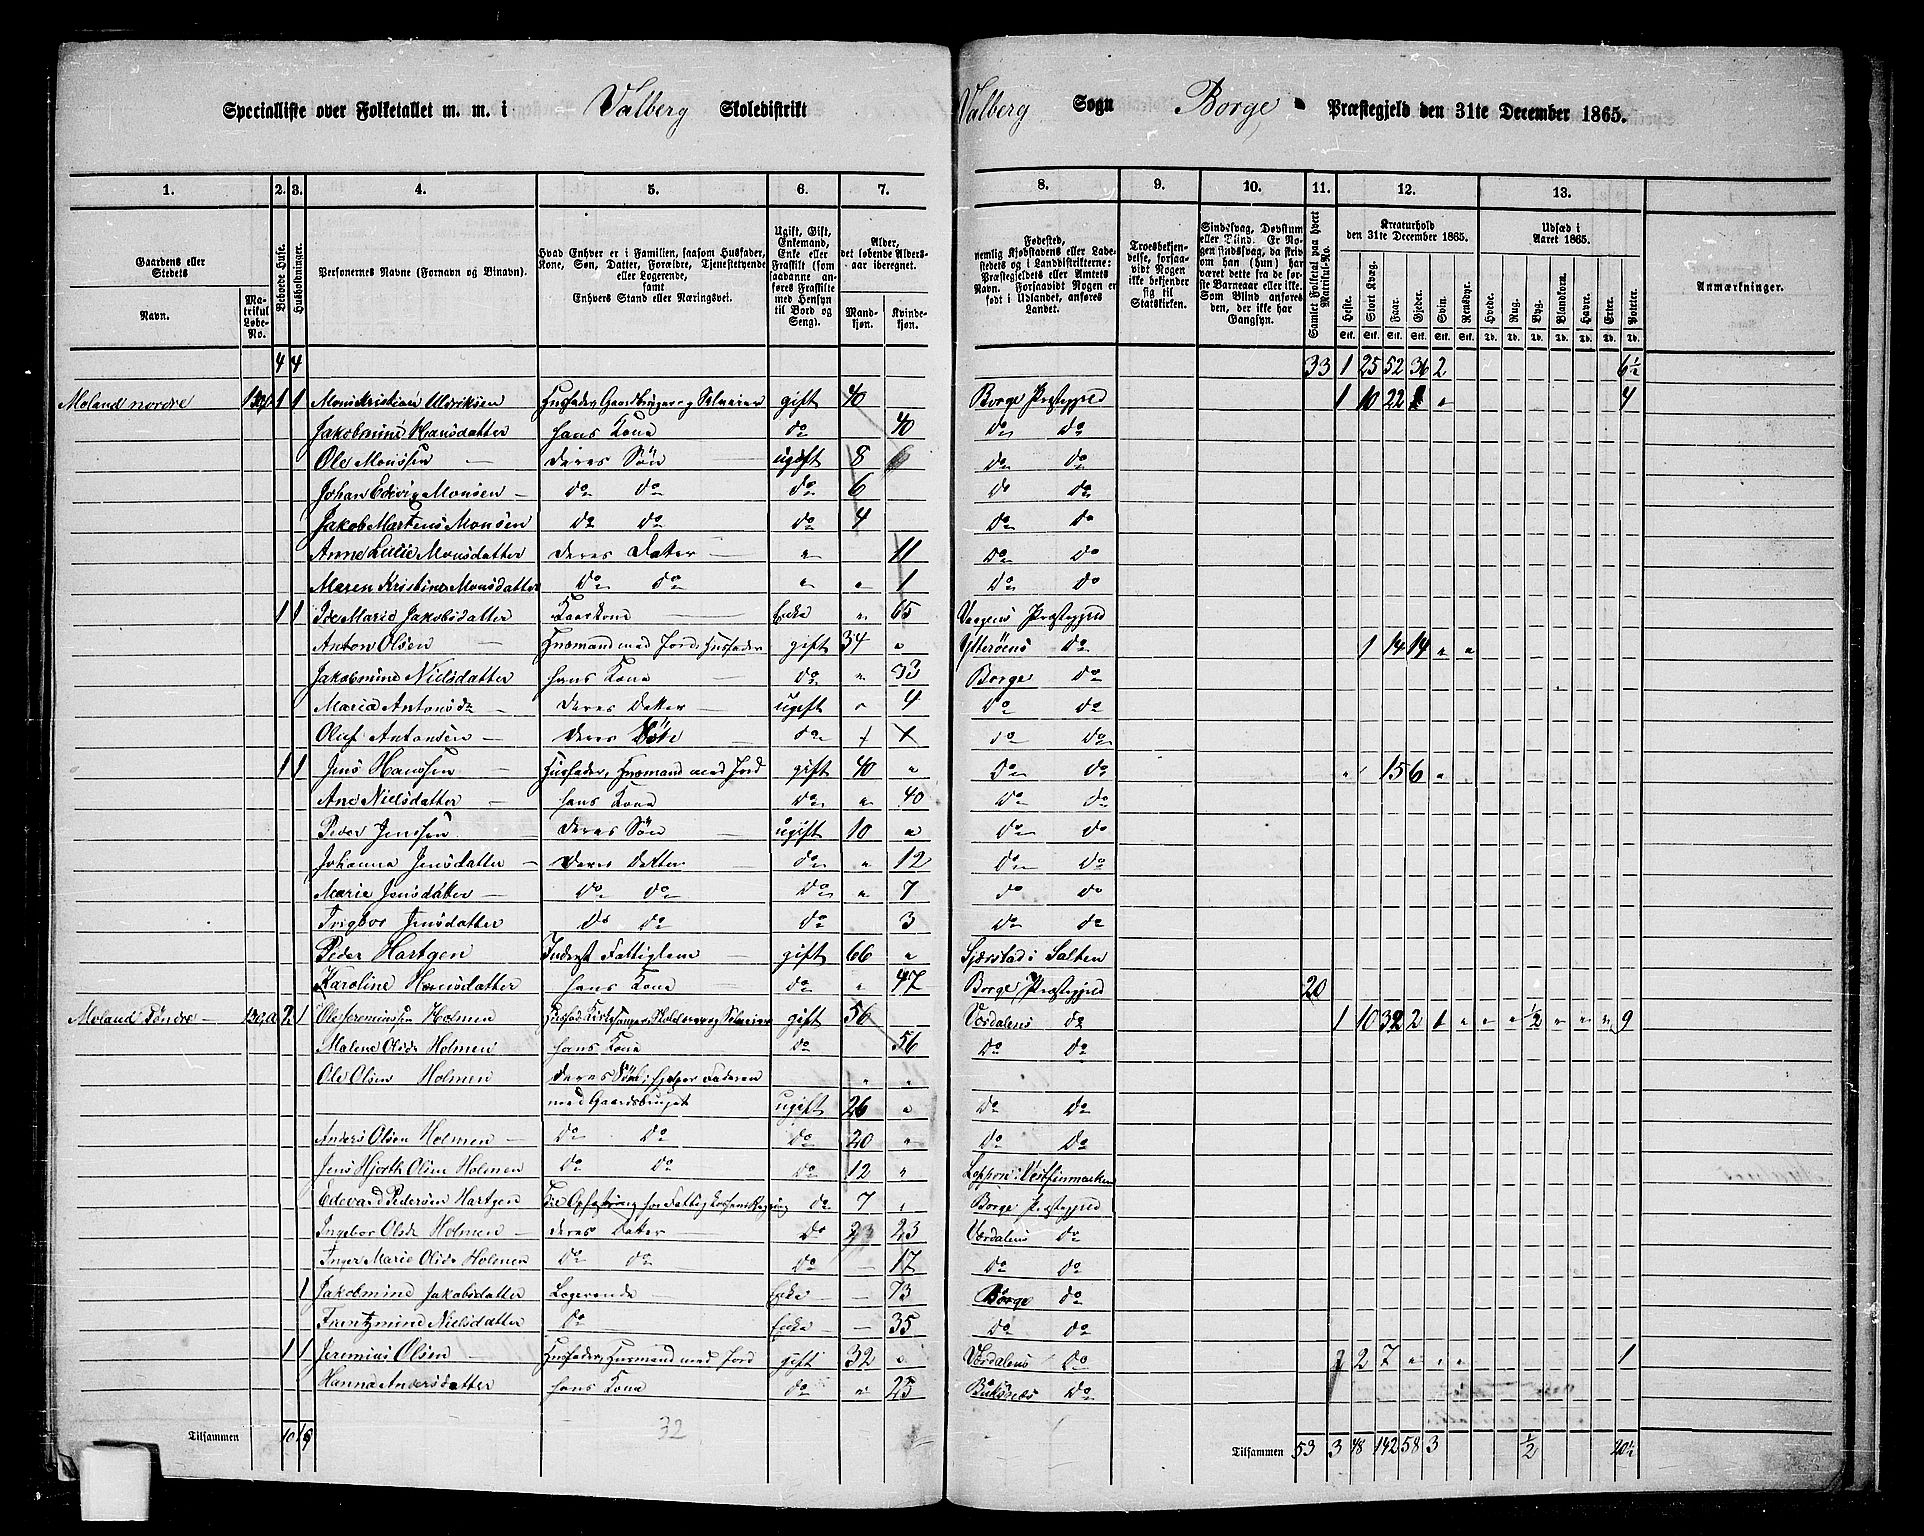 Specialliste over Folketallet m. m. i Valberg Skoledistrikt Valberg Sogn Borge Præstegjeld den 31te December 1865.
1. 2. 3. 4. 5. 6. 7. 8. 9. 10. 11. 12. 13.
Gaardens eller Stedets
Navn.
Matrikul Løbe-No.
Beboede Huse.
Husholdninger.
Personernes Navne (Fornavn og Binavn).
Hvad Enhver er i Familien, saasom Husfader, Kone, Søn, Datter, Forældre, Tjenestetyende eller Logerende, samt Enhvers Stand eller Næringsvei.
Ugift, Gift, Enkemand, Enke eller Fraskilt (som saadanne anføres Fraskilte med Hensyn til Bord og Seng).
Alder, det løbende Aldersaar iberegnet.
Mandkjøn. Kvindekjøn.
Fødested, nemlig Kjøbstadens eller Ladestedets og i Landdistrikterne: Præstegjeldets eller Amtets Navn. Forsaavidt Nogen er født i Udlandet, anføres Landet.
Troesbekjendelse, forsaavidt Nogen ikke bekjender sig til Statskirken.
Sindssvag, Døvstum eller Blind. Er Nogen sindssvag, da skrives om han (hun) har været dette fra de første Barneaar eller ikke. Som Blind anføres den, der ikke har Gangsyn.
Samlet Folketal paa hvert Matrikul-No.
Kreaturhold den 31te December 1865.
Heste. Stort Kvæg. Faar. Gjeder. Svin. Rensdyr.
Udsæd i Aaret 1865.
Hvede. Rug. Byg. Blandkorn. Havre. Erter. Poteter.
Anmærkninger.
4 4 33 1 25 52 36 2 6½
Moland nordre 1 1 Mons Kristian Uldriksen Husfader, Gaardbruger og Selveier gift 40 Borge Præstegjeld 1 10 22 4
Jakobmine Hansdatter hans Kone do 40 do do
Ole Monssen deres Søn ugift 8 do do
Johan Edvig Monsen do do do 6 do do
Jakob Martens Monsen do do do 4 do do
Anne Lucie Monsdatter deres Datter " 11 do do
Maren Kristine Monsdatter do do " " 1 do do
1 1 Ide Marie Jakobsdatter Kaarkone Enke " 65 Vaagens Præstegjeld
Anton Olsen Husmand med Jord, Husfader gift 34 " Ytterøens do 1 14 14 " "
Jakobmine Nielsdatter hans Kone do " 33 Borge do
Maria Antonsdr deres Datter ugift " 4 do do
Oluf Antonsen deres do do do
1 1 Jens Hanssen Husfader, Husmand med Jord gift 40 " do do 15 6 "
Ane Nielsdatter hans Kone do " 40 do do
Peder Jenssen deres Søn ugift 10 " do do
Johanna Jensdatter deres Datter do " 12 do do
Marie Jensdatter do do do " 7 do do
Jensdatter do do do 3 do do
Peder Hartgen Inderst Fattiglem gift 66 " i Salten
Karoline Hansdatter hans Kone do " 47 Borge Præstegjeld 20
Moland Søndre 130,a 2 1 Ole Jeremiassen Holmen gift 56 Værdalens do 1 10 32 2 1 " " " ½ " " " 9
Malene Olsdr Holmen hans Kone do 56 do do
Ole Olsen Holmen deres Søn, hjelper Faderen " "
med Gaardsbruget ugift 26 " do do
Anders Olsen Holmen do do do 20 " do do
Jens Hjorth Olsen Holmen do do do 12 " Loppen i Vestfinmarken
Edevard Pedersen Hartgen do 7 " Borge Præstegjeld
Ingebor Olsdr Holmen deres Datter do 23 Værdalens do
Inger Marie Olsdr Holmen do do do 17 do do
1 Jakobmine Jakobsdatter Logerende Enke 73 Borge do
Frentzmine Nielsdatter do Enke 35 do do
1 1 Jeremias Olsen Husfader, Husmand med Jord gift 32 " Værdalens do 2 7 " " " 1
Hanna Andersdatter hans Kone do " 25 Buksnæs do
32
Tilsammen 10
Tilsammen 53 3 48 142 58 3 ½ 20½